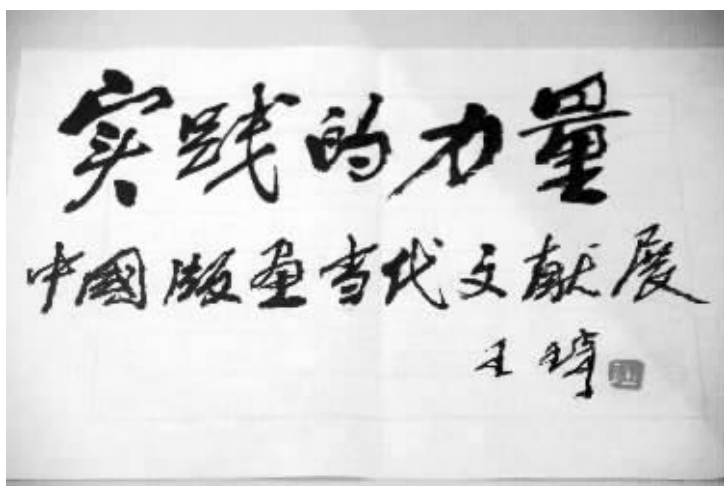 实践的力量
中國版画当代文献展
王琦